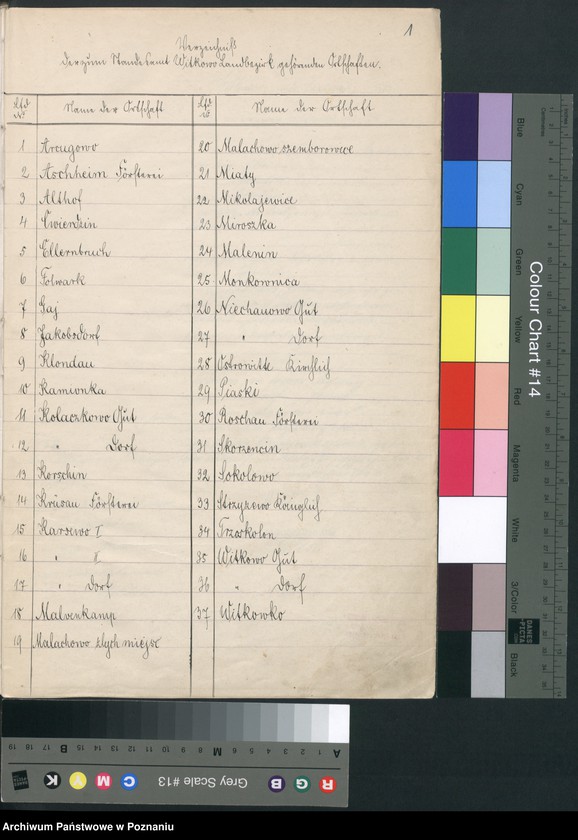 1
Verzeichniß
der zum Standesamt Witkowo Landbezirk gehörenden Ortschaften.
Lfd No Name der Ortschaft
1 Arcugowo
2 Aschheim Försterei
3 Althof
4 Cwierdzin
5 Ellernbruch
6 Folwark
7 Gaj
8 Jakobsdorf
9 Klondau
10 Kamionka
11 Kolaczkowo Gut
12 " Dorf
13 Korschin
14 Krusau Försterei
15 Karsewo I
16 " II
17 " Dorf
18 Malvenkamp
19 Malachowo zlych miejsc
Lfd No Name der Ortschaft
20 Malachowo szemborowice
21 Miaty
22 Mikolajewice
23 Miroszka
24 Malenin
25 Monkownica
26 Niechanowo Gut
27 " Dorf
28 Ostrowitte Kirchlich
29 Piaski
30 Roschau Försterei
31 Skorzencin
32 Sokolowo
33 Strzyzewo Königlich
34 Trzoskolon
35 Witkowo Gut
36 " Dorf
37 Witkowko
Colour Chart #14
Blue
Cyan
Green
Yellow
Red
Magenta
White
3/Color
Black
Centimetres
Inches
DANES
PICTA
Grey Scale #13
A 1 2 3 4 5 6 M 8 9 10 11 12 13 14 15 B 17 18 19
R G B C M Y K
Archiwum Państwowe w Poznaniu